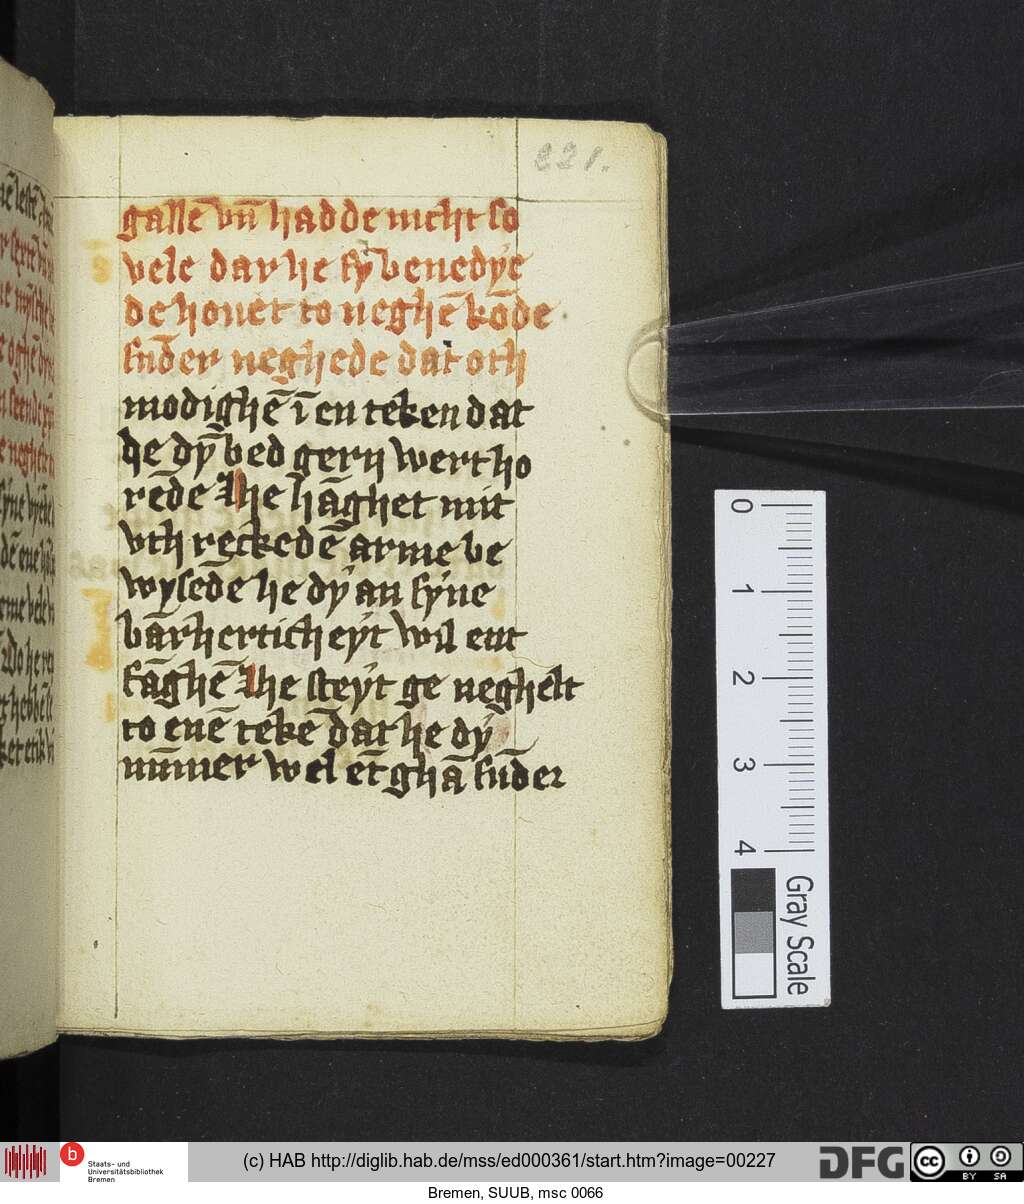 221.
galle vn̄ hadde nicht so
vele dar he sẏ benedẏe
de houet to neghē kōde
sūder neghede dat oth
modighē ī en teken dat
de dȳ bed gern wert ho
rēde Ihe hāghet mit
vth reckedē arme be
wysede he dẏ an sẏne
bārherticheẏt wil ent
fāghē Ihe steẏt ge neghelt
to enē tekē dat he dẏ
nūmer wel ēt ghā sūder
0 1 2 3 4
Gray Scale
b Staats- und
Universitätsbibliothek
Bremen
(c) HAB http://diglib.hab.de/mss/ed000361/start.htm?image=00227
DFG
cc BY SA
Bremen, SUUB, msc 0066